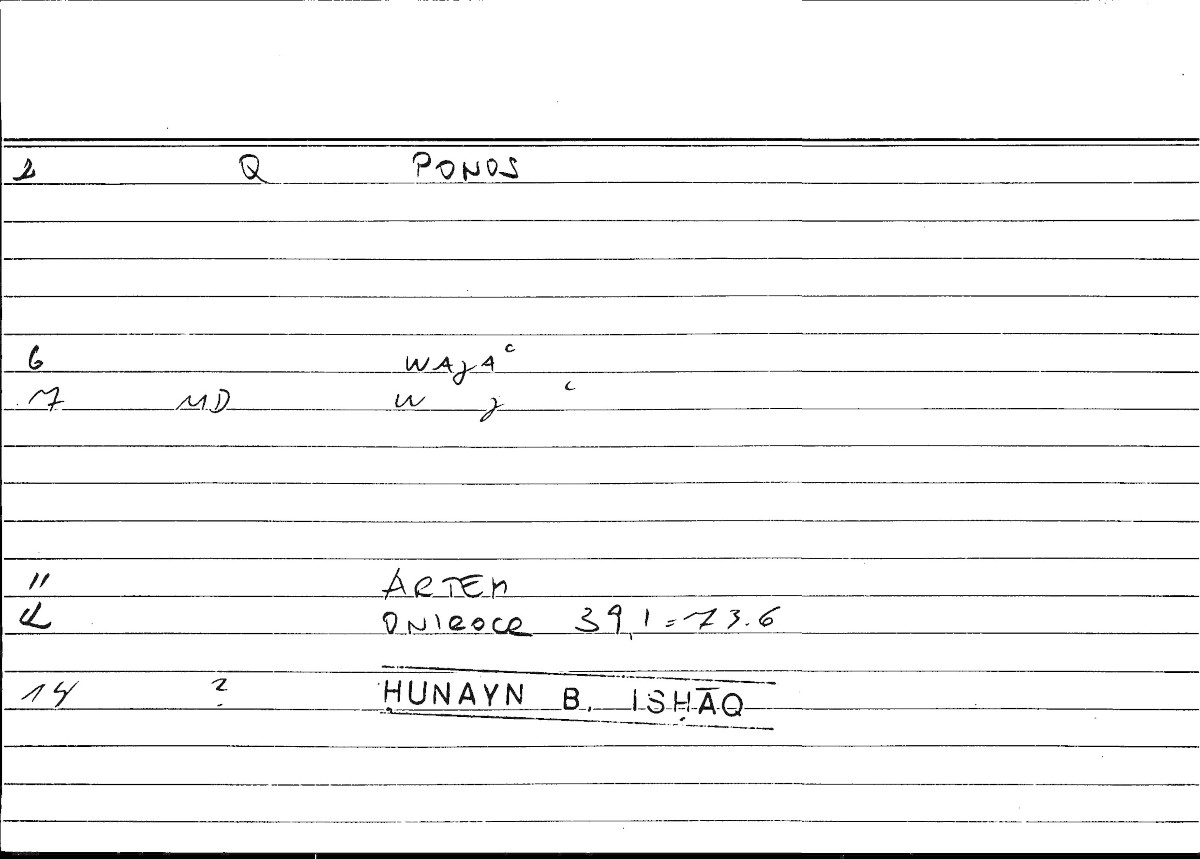 1 Q PONOS
6 WAJAᶜ
7 MD W J ᶜ
11 ARTEM
12 ONIROCR 39,1=73.6
14 ? ḤUNAYN B. ISḤĀQ